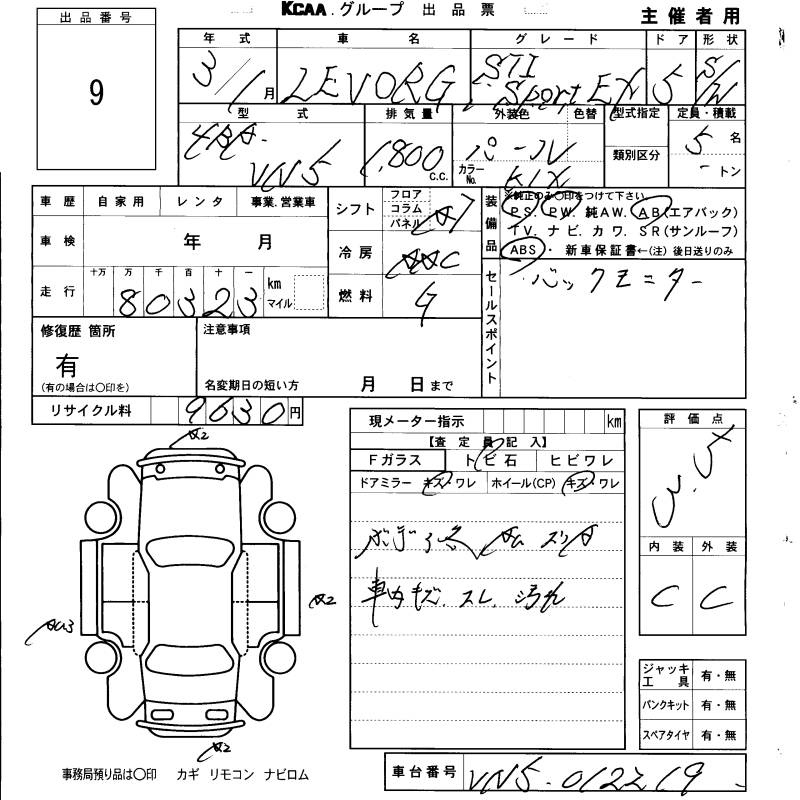 KCAA.グループ 出品票
主催者用
出品番号
9
年式 車名 グレード ドア 形状
3/1月 LEVORG STI Sport EX 5 S/W
型式 排気量 外装色 色替 型式指定 定員・積載
4BA-VN5 1,800c.c. パール カラーNo. K1X 類別区分 5名
-トン
車歴 自家用 レンタ 事業.営業車
シフト フロア コラム パネル
車検 年 月
冷房
走行 十万 万 千 百 十 一 km マイル
80323
燃料
装備品 ※純正のみ〇印をつけて下さい
PS. PW. 純AW. AB(エアバック)
TV. ナビ. カワ. SR(サンルーフ)
ABS・新車保証書←(注)後日送りのみ
セールスポイント バックモニター
修復歴 箇所 注意事項
有
(有の場合は〇印を)
名変期日の短い方 月 日まで
リサイクル料 9630円
現メーター指示 km
【査定員記入】
Fガラス トビ石 ヒビワレ
ドアミラー キズ・ワレ ホイール(CP) キズ・ワレ
車内キズ.スレ.汚れ
評価点
内装 外装
C C
ジャッキ工具 有・無
パンクキット 有・無
スペアタイヤ 有・無
事務局預り品は〇印 カギ リモコン ナビロム
車台番号 VN5-012219